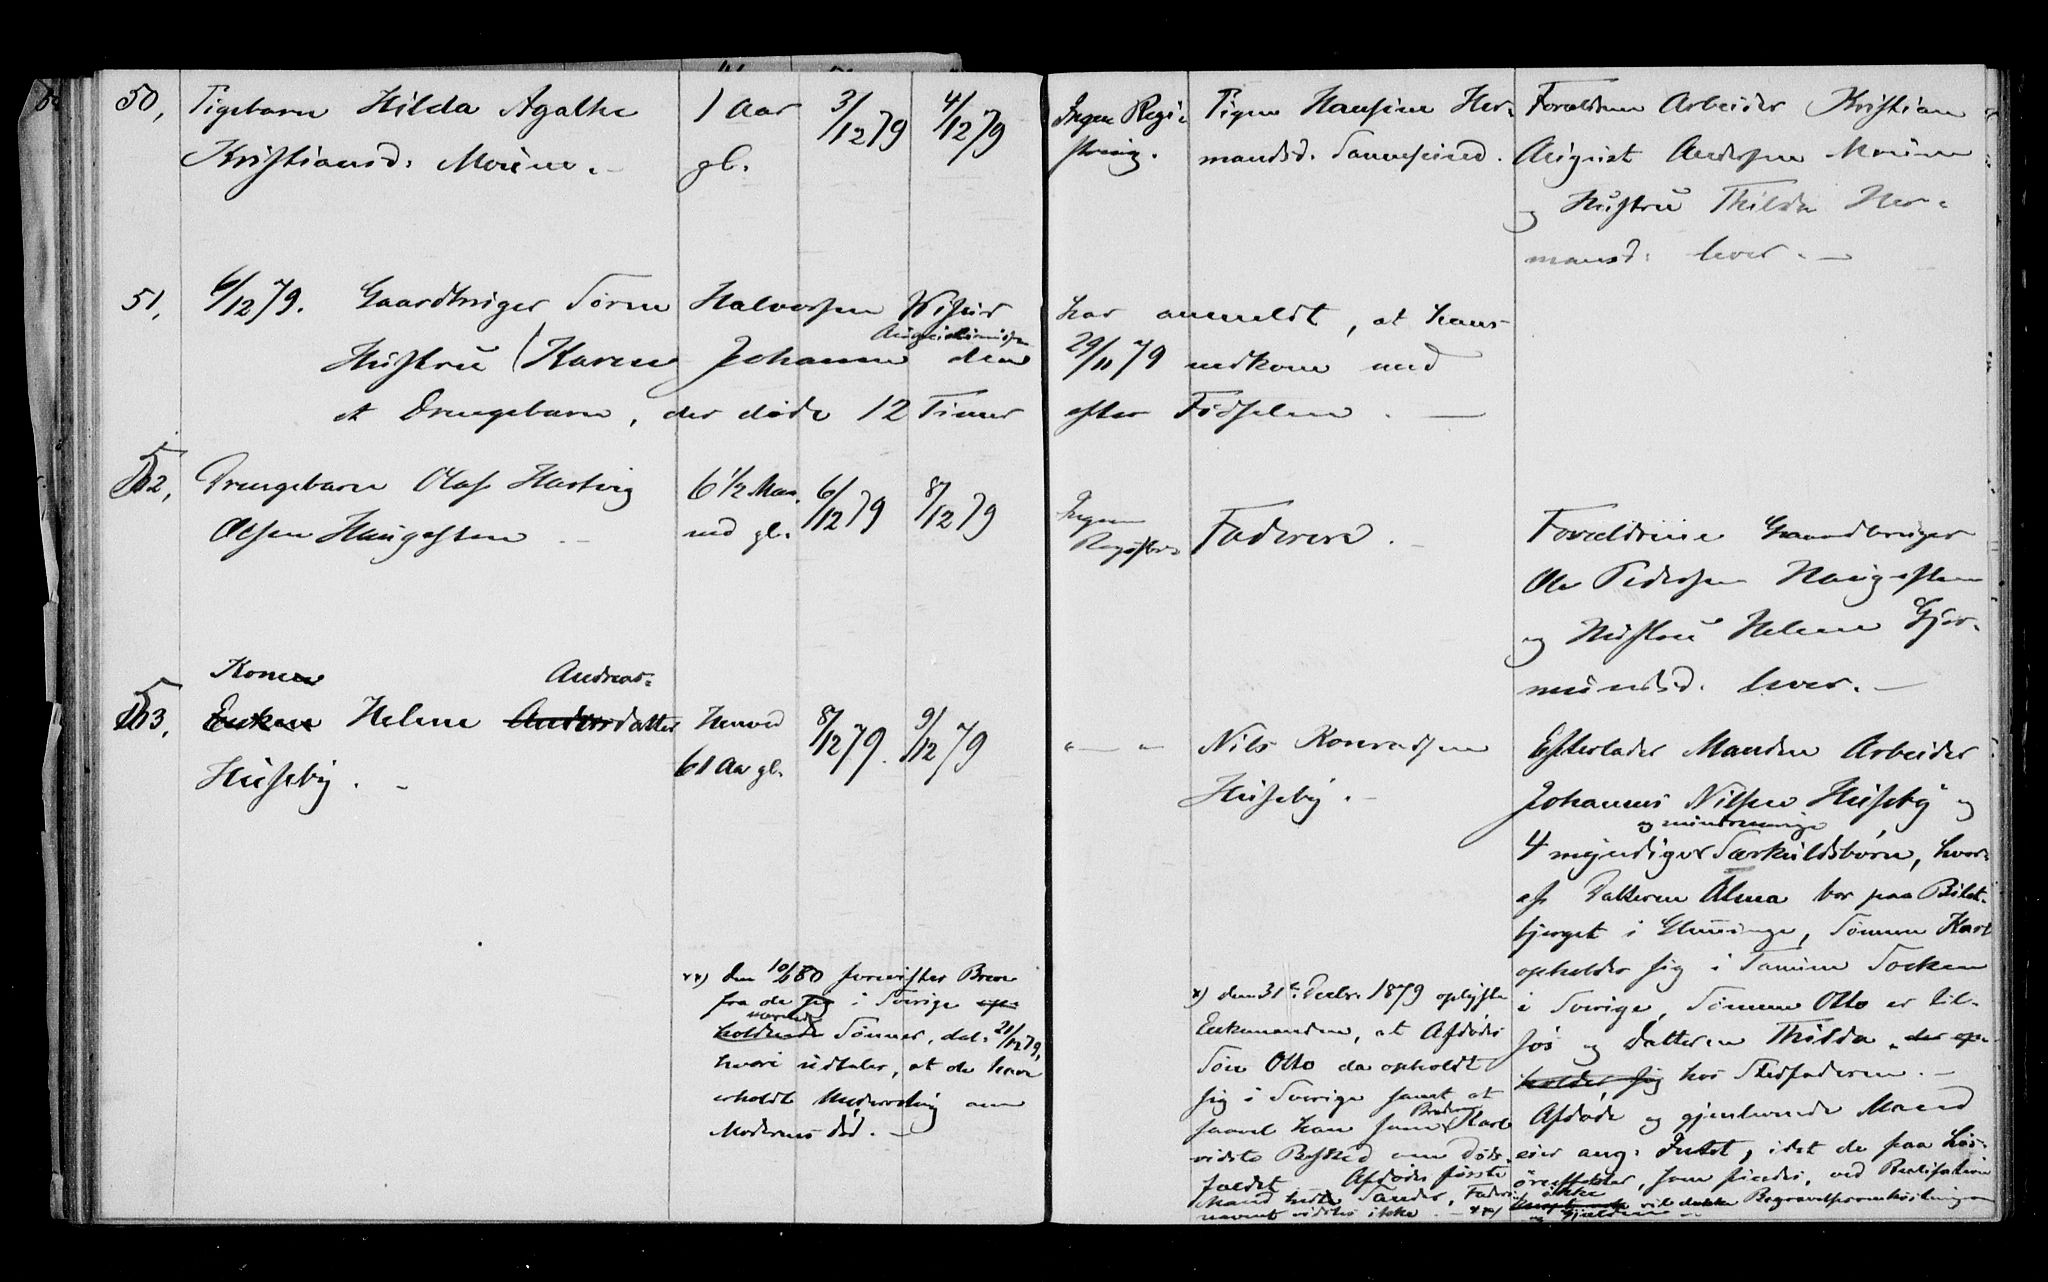 50, Pigebarn Hilda Agathe
Kristiansd: Moium. –
1 Aar
gl.
3/12 79
4/12 79
Ingen Regi-
string.
Pigen Hansine Her-
mandsd.
Forældrene Arbeider Kristian
August Andersen
og Hustru Thilda Her-
mansd: lever. –
51, 6/12 79. Gaardbruger Søren Halvorsen
har anmeldt, at hans
Hustru (Karen Johanne den
29/11 79 nedkom med
et Drengebarn, der døde 12 Timer
efter Fødselen. —
52, Drengebarn Olaf Hartvig
Olsen Haugesten –
6 1/2 Maa-
ned gl.
6/12 79
8/12 79
Ingen
Registr.
Faderen. –
Forældrene Gaardbruger
Ole Pedersen Haugesten
og Hustru Helene Gjer-
mundsd. lever. –
Konen Andreas-
53, Enken Helene Andersdatter
Huseby. –
Henved
61 Aar gl.
8/12 79.
9/12 79
" — "
Nils Konradsen
Huseby. –
Efterlader Manden Arbeider
Johannes Nilsen Huseby og
og mindreaarige
4 myndige Særkuldsbørn, hvor-
af Datteren Alma bor paa
i Sønnen Karl
opholder sig i Socken
i Sverige, Sønnen Otto er til-
søs og Datteren Thilda, der op-
holder sig hos Stedfaderen. –
Afdøde og gjenlevende Mand
eier ang: Intet, idet de faa Løs-
øreeffekter, som findes, ved Realisation
ikke vil dække Begravelsesomkostningerne
og Gjælden –
xx) Den 10/1 80 forevistes Breve
fra de i Sverige
værende
holdende Sønner, dat: 21/12 79,
hvori udtales, at de have
erholdt Underretning om
Moderens død. –
x) den 31te Decbr. 1879 oplyste
Enkemanden, at Afdødes
Søn Otto da opholdt
sig i Sverige samt at
saavel han som Broderen Karl
vidste Besked om Døds-
faldet. Afdødes første
Mand hedte Sander, Faderens
navnet vidstes ikke. – xx)